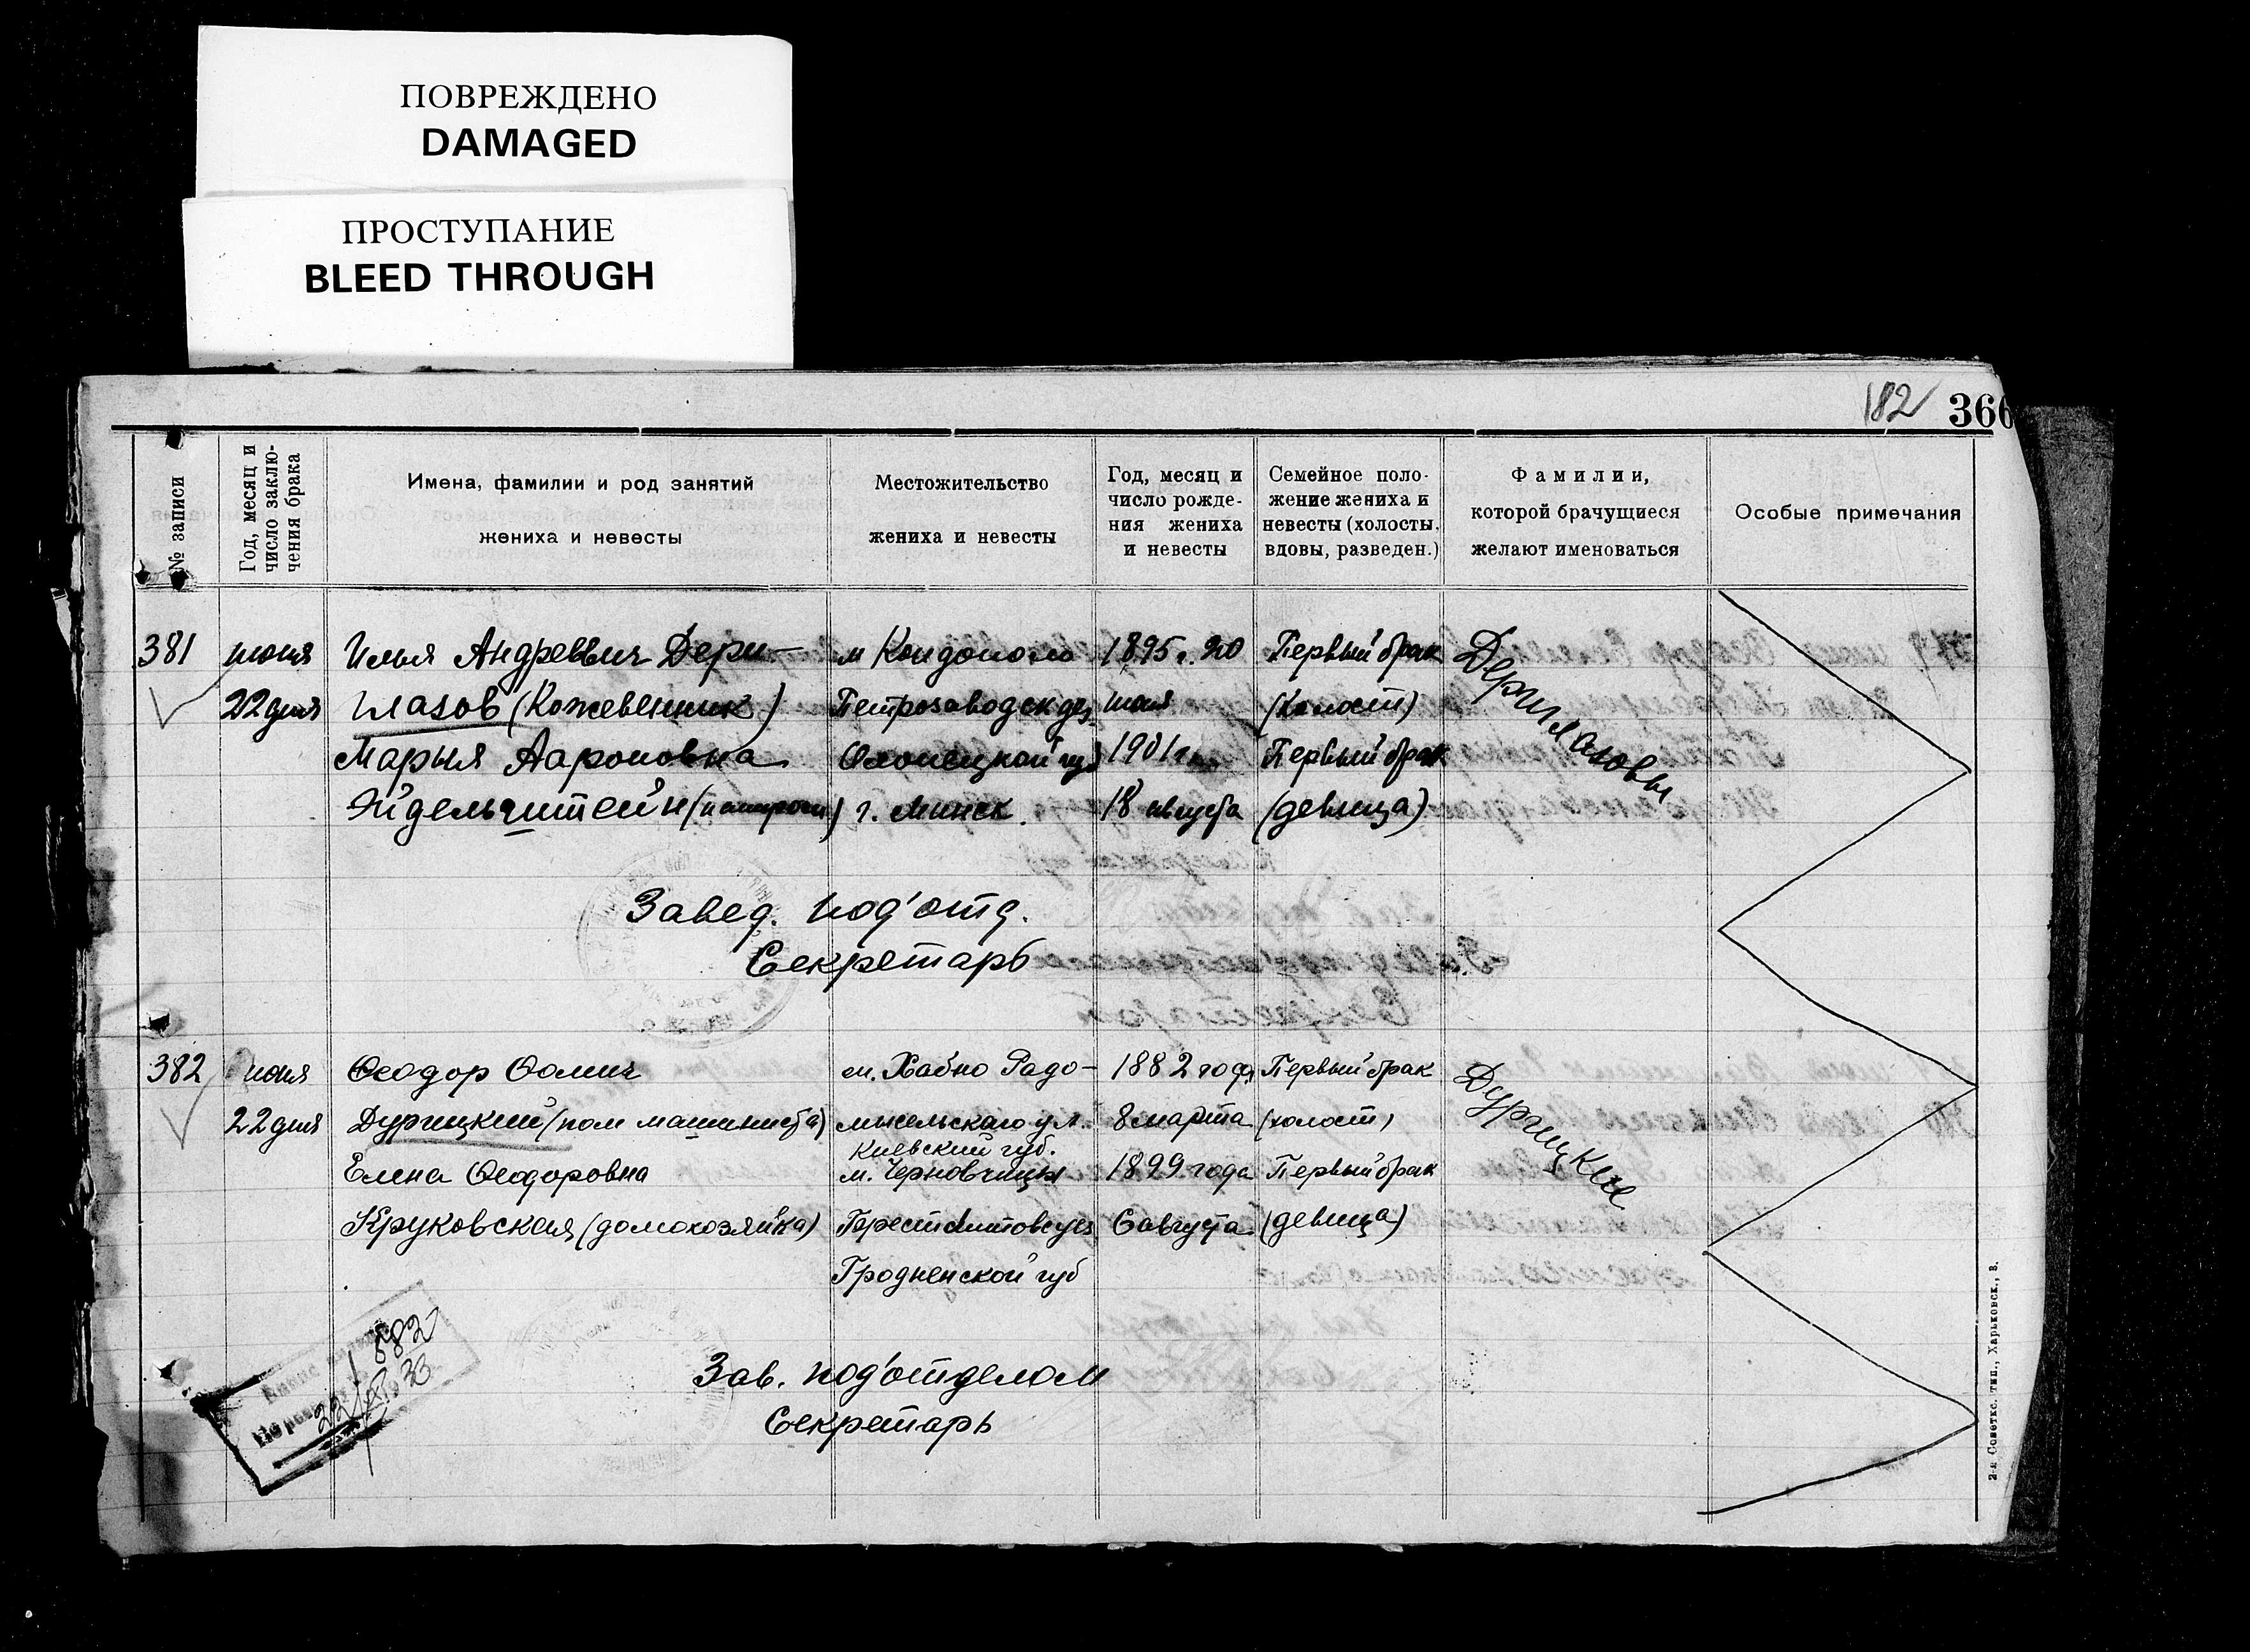 ПОВРЕЖДЕНО
DAMAGED
ПРОСТУПАНИЕ
BLEED THROUGH
182 366
№ записи
Год, месяц и
число заклю-
чения брака
Имена, фамилии и род занятий
жениха и невесты
Местожительство
жениха и невесты
Год, месяц и
число рожде-
ния жениха
и невесты
Семейное поло-
жение жениха и
невесты (холосты,
вдовы, разведен.)
Фамилии,
которой брачущиеся
желают именоваться
Особые примечания
381 июня Илья Андреевич Дери- 1895 г. 20 Первый брак Дериглазовы
22 дня глазов (Кожевенник) Петрозаводск уез (холост)
Марья Аароновна Олонецкой губ 1901 г. Первый брак
Эйдельштейн г. Минск. 18 августа (девица)
Завед. под'отд.
Секретарь
382 июня Феодор Фомич м. Хабно Радо- 1882 года Первый брак Дурицкие
22 дня Дурицкий (пом машиниста) мысльскаго у. 8 марта (холост)
Киевский губ.
Елена Феодоровна м. Черновчицы 1899 года Первый брак
Круковская (домохозяйка) 6 августа (девица)
Гродненской губ
Зав. под'отделом
Секретарь
882
2-я Советск. тип., Харьковск., 3.